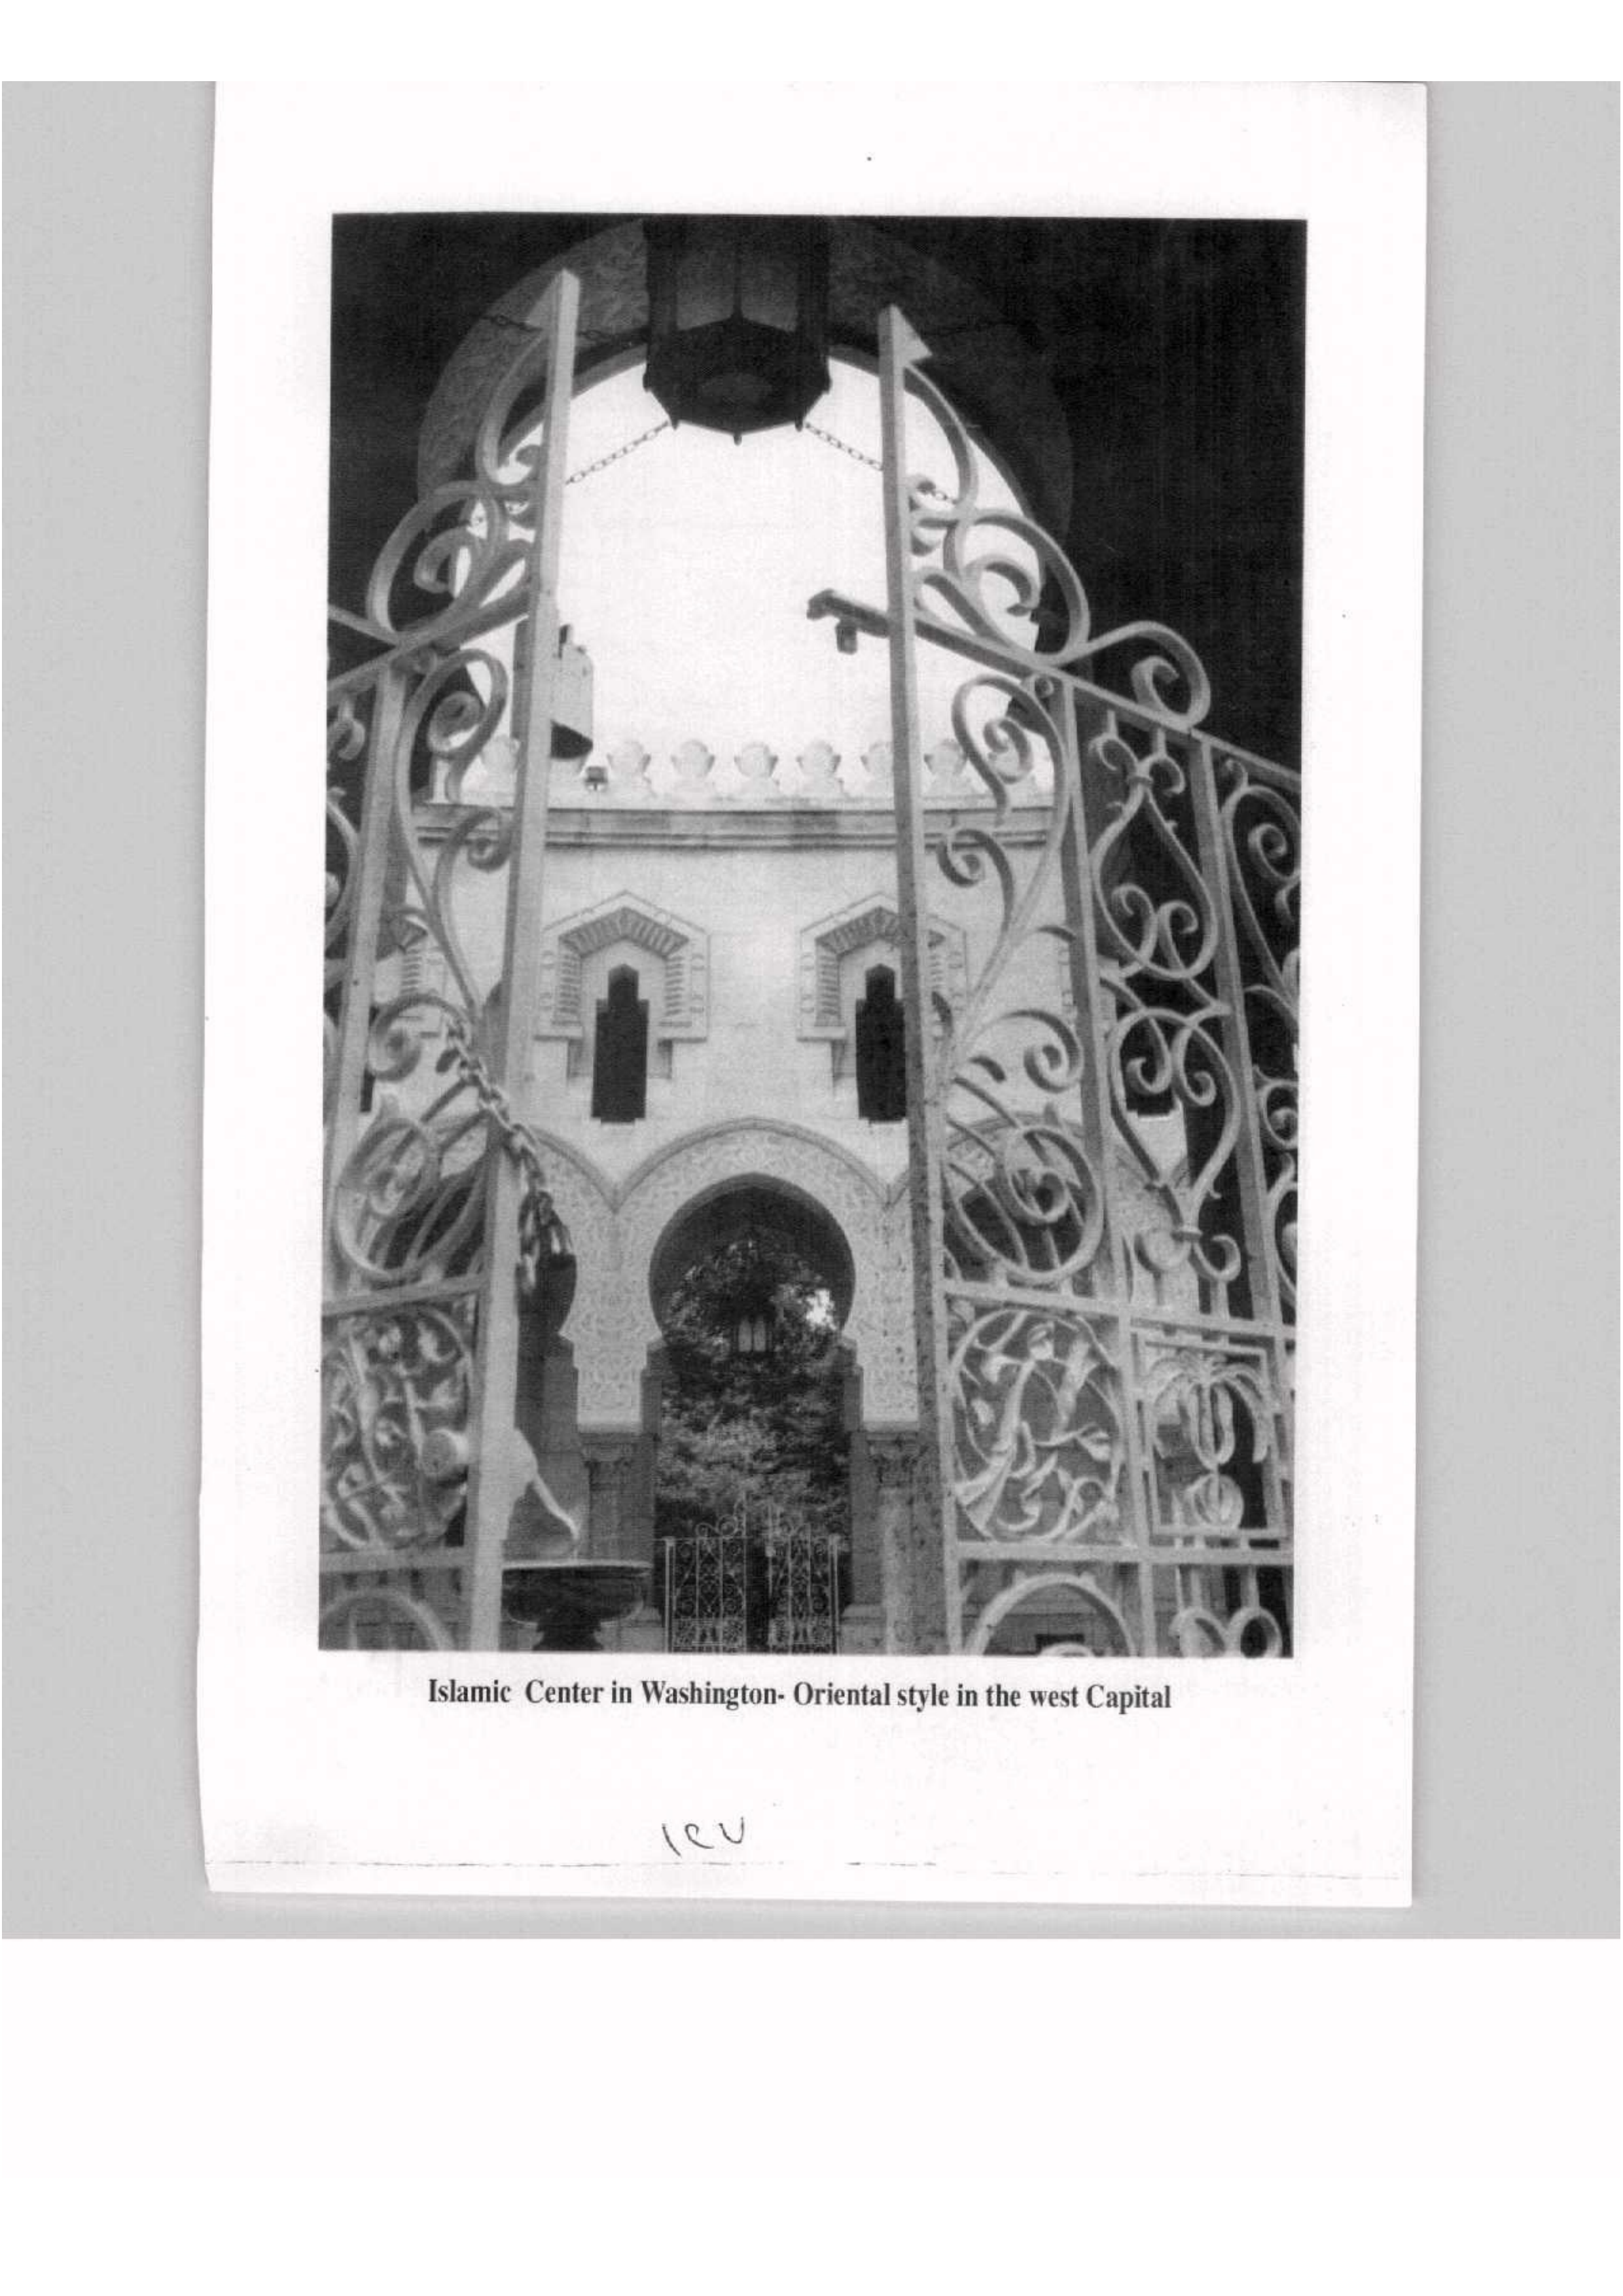 Islamic Center in Washington- Oriental style in the west Capital